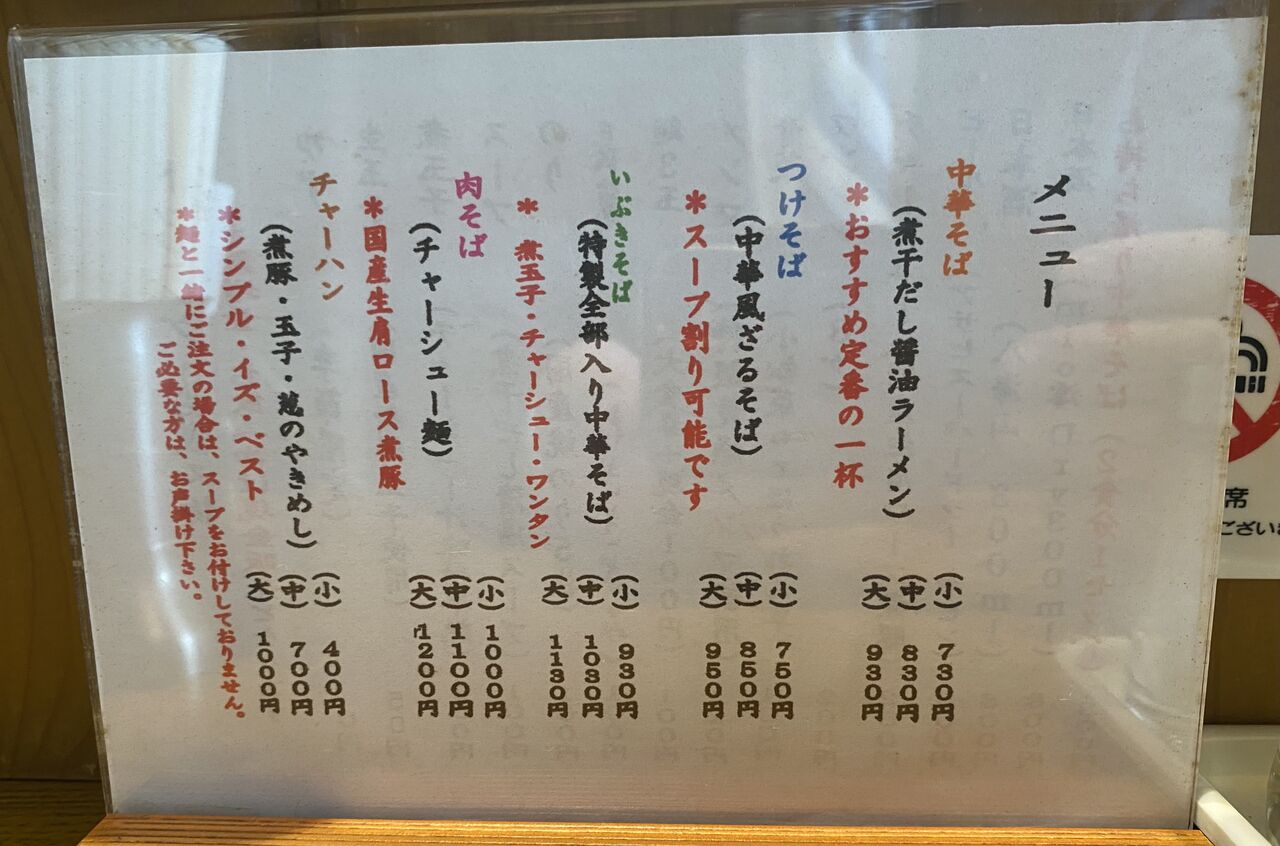 メニュー
中華そば
(煮干だし醤油ラーメン)
*おすすめ定番の一杯
(小) 730円
(中) 830円
(大) 930円
つけそば
(中華風ざるそば)
*スープ割り可能です
(小) 750円
(中) 850円
(大) 950円
いぶきそば
(特製全部入り中華そば)
* 煮玉子・チャーシュー・ワンタン
(小) 930円
(中) 1030円
(大) 1130円
肉そば
(チャーシュー麺)
*国産生肩ロース煮豚
(小) 1000円
(中) 1100円
(大) 1200円
チャーハン
(煮豚・玉子・葱のやきめし)
*シンプル・イズ・ベスト
(小) 400円
(中) 700円
(大) 1000円
*麺と一緒にご注文の場合は、スープをお付けしておりません。
ご必要な方は、お声掛け下さい。
席
ござい